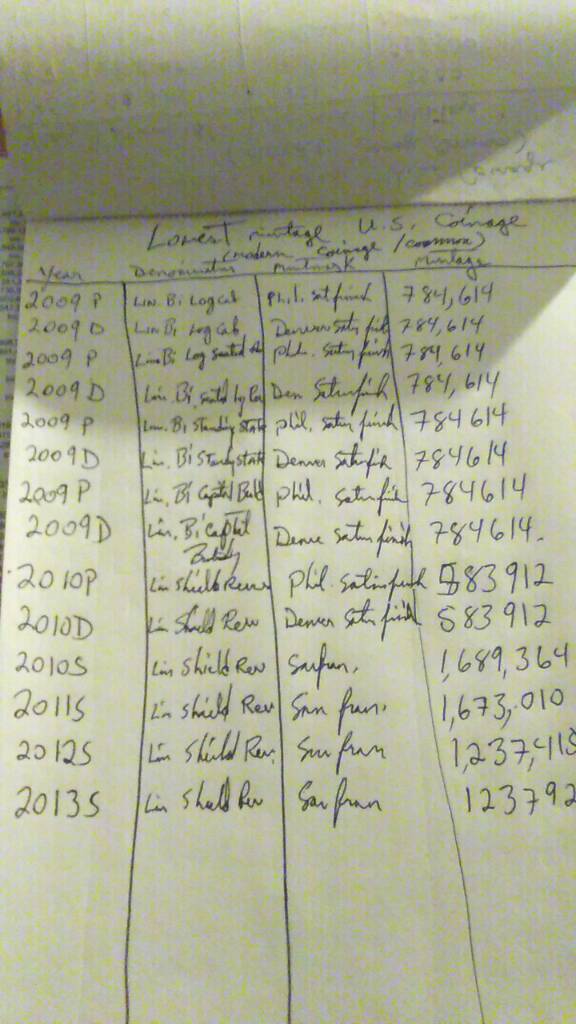 Lowest mintage U.S. Coinage
(modern coinage / common)
Year Denomination Mintmark Mintage
2009 P Lin. Bi Log Cab Phil. Satin finish 784,614
2009 D Lin Bi Log Cab. Denver Satin fish 784,614
2009 P Lin Bi Log seated Phil. Satin finish 784,614
2009 D Lin. Bi, seated by Den Satin finish 784,614
2009 P Lin. Bi Standing State Phil. Satin finish 784614
2009 D Lin, Bi Standing State Denver Satin fish 784614
2009 P Lin, Bi Capitol Build Phil. Satin fish 784614
2009 D Lin, Bi Capitol Denver Satin finish 784614.
2010 P Lin Shield Reverse Phil. Satin finish 583 912
2010 D Lin Shield Rev Denver Satin finish 583 912
2010 S Lin Shield Rev San fran, 1,689,364
2011 S Lin Shield Rev San fran. 1,673,010
2012 S Lin Shield Rev. San fran 1,237,415
2013 S Lin Shield Rev San fran 123792